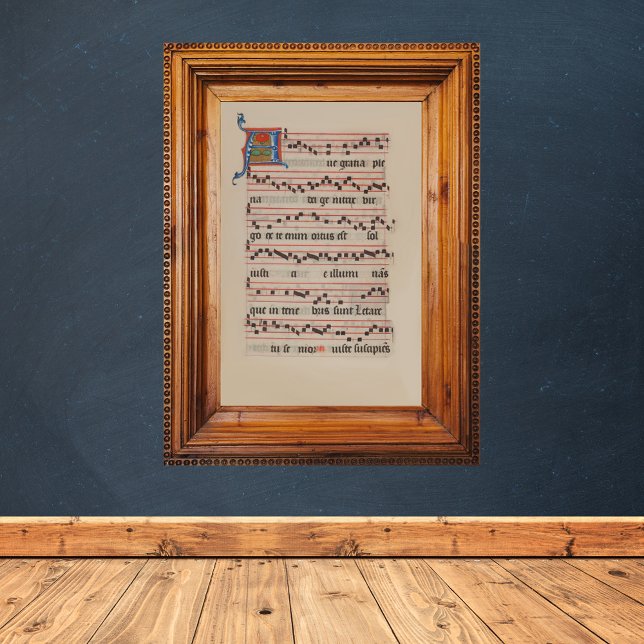 A ue gratia ple
na dei genitrix vir
go ex te enim ortus est sol
iusti ci e illumi nās
que in tene bris sunt Letare
tu se nior iuste suscipiēs